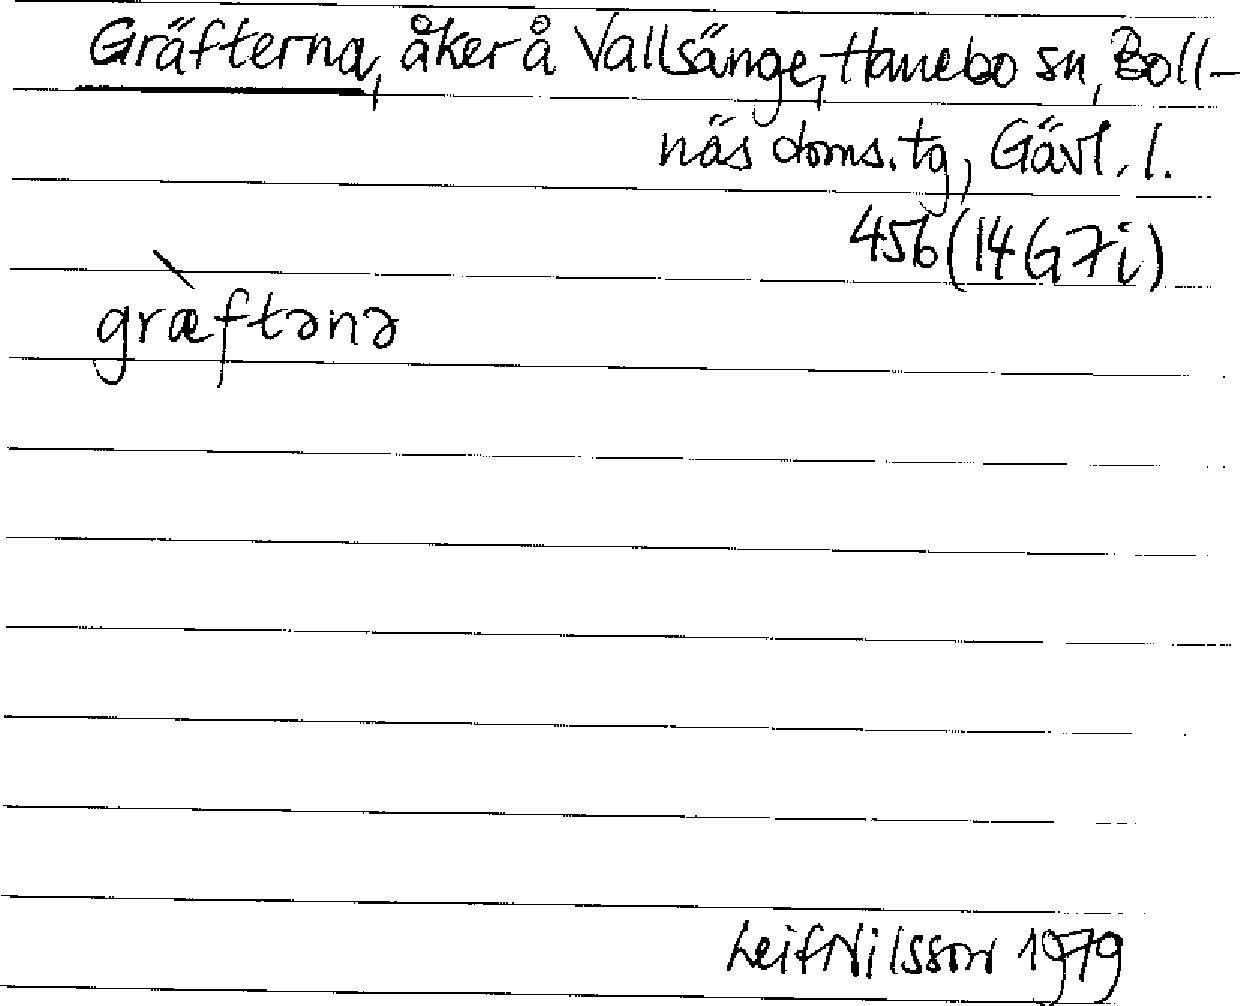 Gräfterna, åker å Vallsänge, Hanebo sn, Boll-
näs doms.tg, Gävl. l.
456 (14G7i)
græ̀ftənə
Leif Nilsson 1979